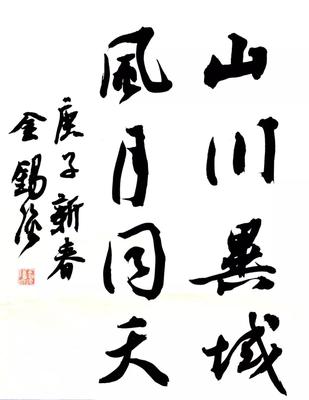 山川異域
風月同天
庚子新春
金錫後